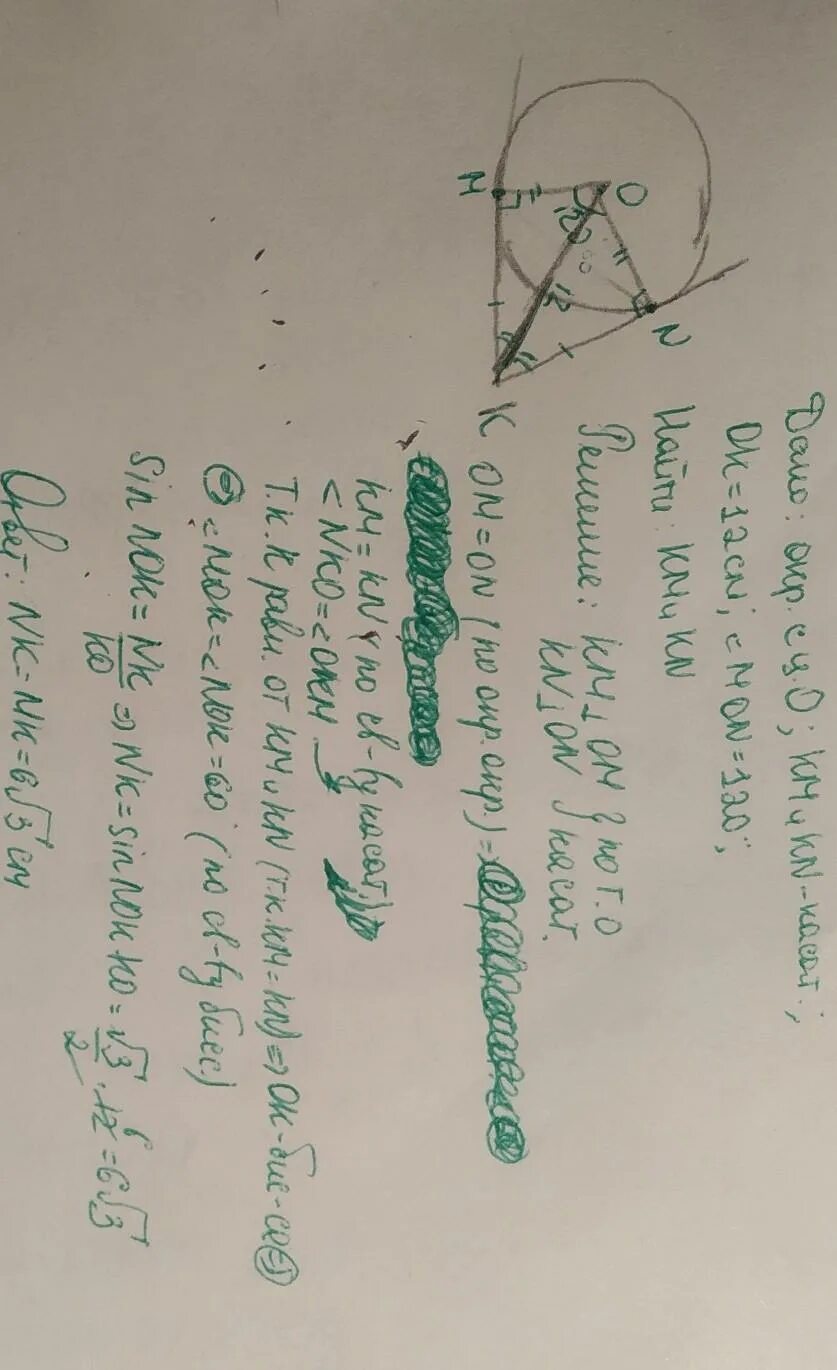 Дано: окр. с ц.О; КМ и KN-касат.;
OK=12см; <MON=120°;
Найти: КМ и KN
Решение: KM⊥OM } по т. о
KN⊥ON } касат.
OM=ON (по опр. окр.)
KM=KN (по св-ву касат.)
<NKO=<OKM
Т.к. К равн. от КМ и KN (т.к. KM=KN) => OK-бис-са =>
=> <MOK=<NOK=60° (по св-ву бисс.)
Sin NOK = NK/KO => NK = sin NOK * KO = √3/2 · 12 6 = 6√3
Ответ: NK=NK=6√3 см
O
M
N
K
120
60
12